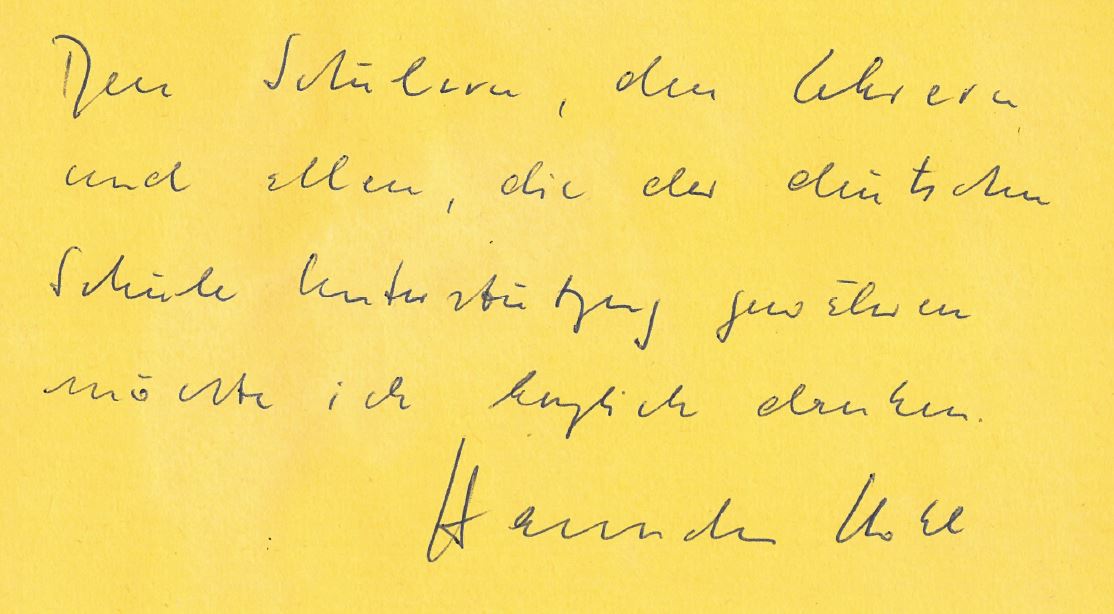 Den Schülern, den Lehrern
und allen, die der deutschen
Schule Unterstützung gewähren
möchte ich herzlich danken.
Hannelore Kohl